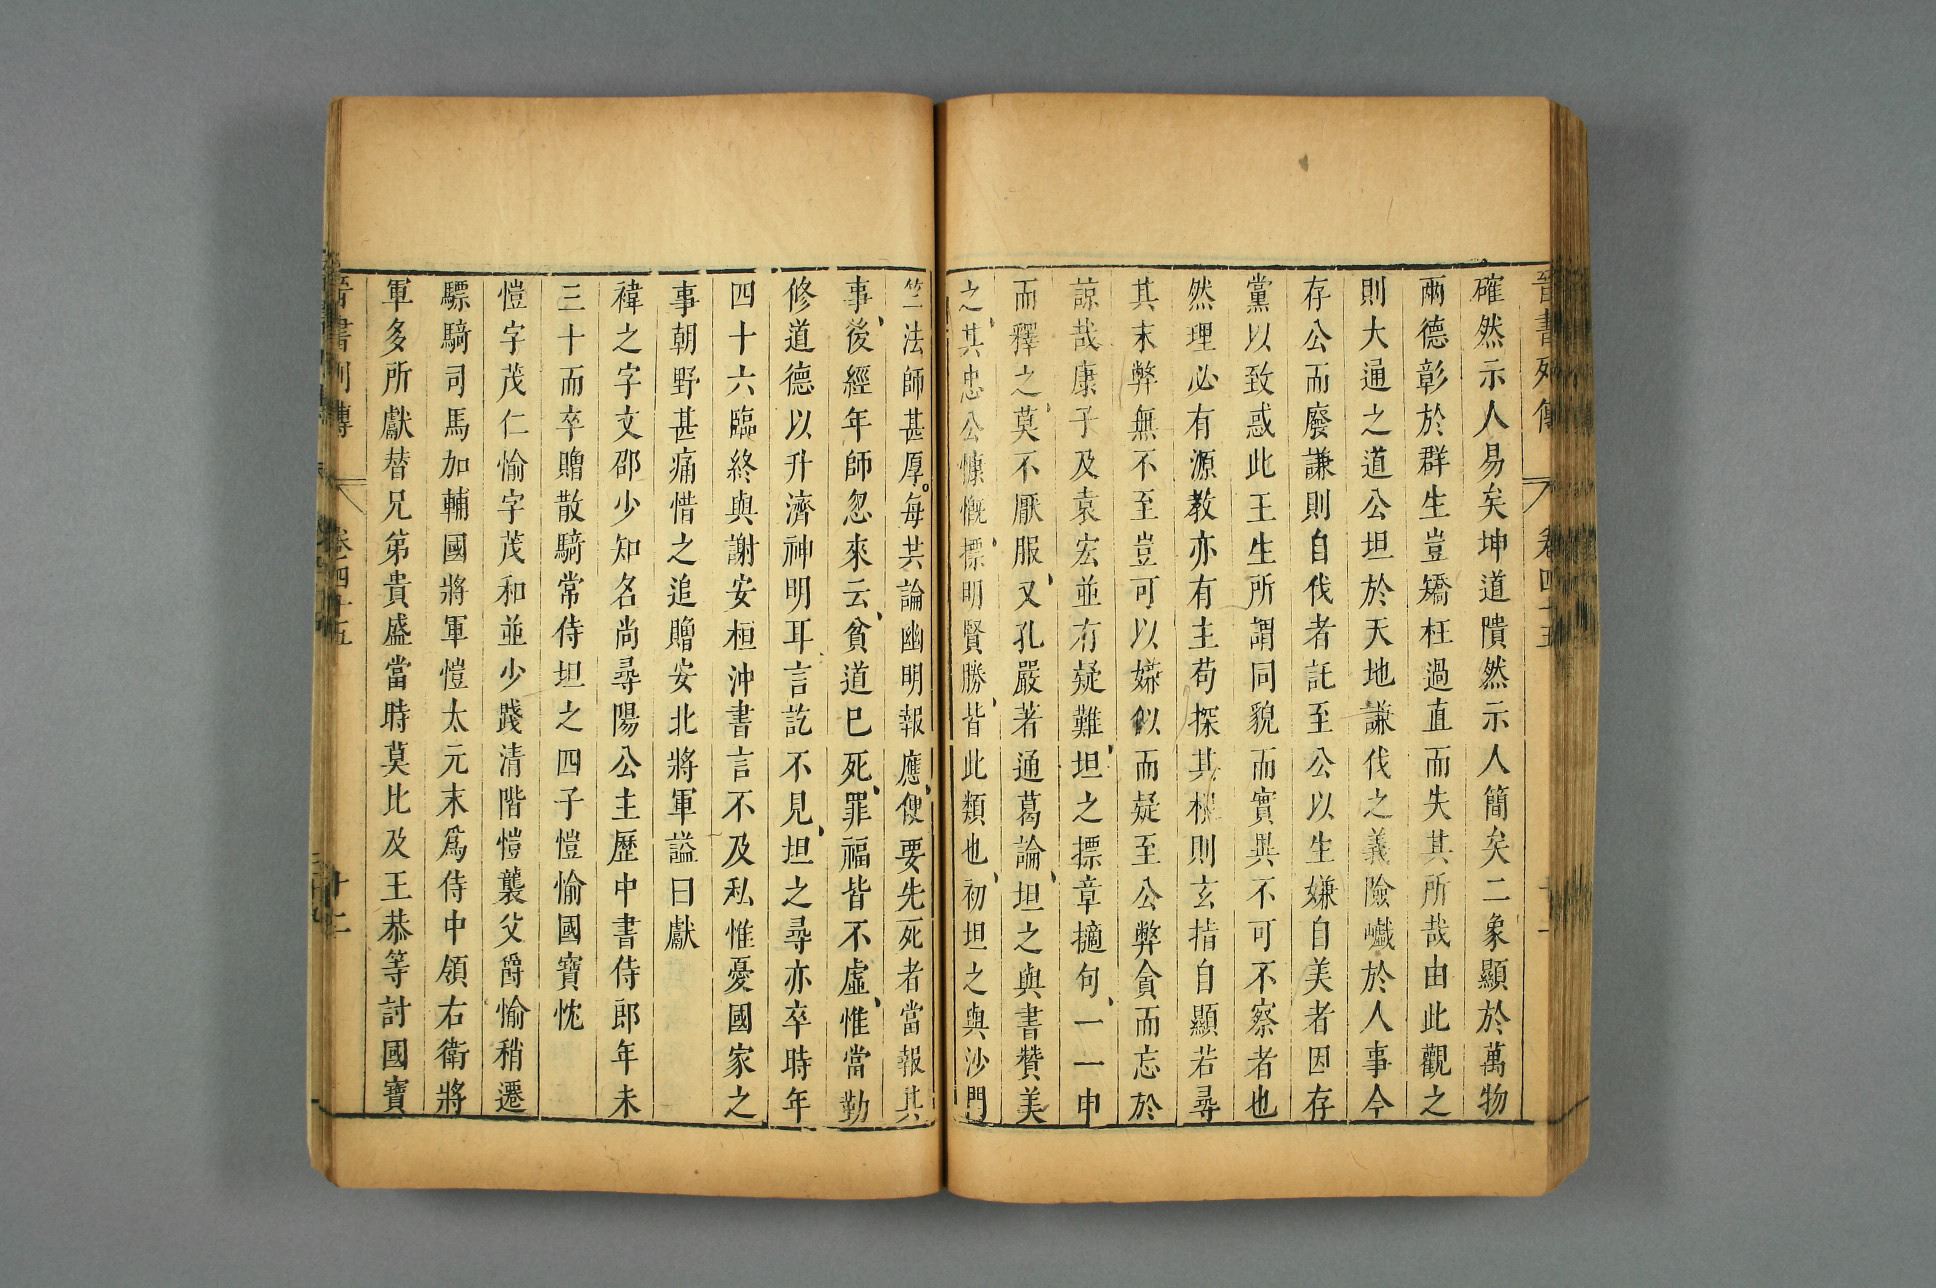 晉書列傳 卷四十五
確然示人易矣坤道隤然示人簡矣二象顯於萬物
兩德彰於群生豈矯枉過直而失其所哉由此觀之
則大通之道公坦於天地謙伐之義險巇於人事今
存公而廢謙則自伐者託至公以生嫌自美者因存
黨以致惑此王生所謂同貌而實異不可不察者也
然理必有源教亦有主苟探其根則玄指自顯若尋
其末弊無不至豈可以嫌似而疑至公弊貪而忘於
諒哉康子及袁宏並有疑難坦之摽章擿句一一申
而釋之莫不厭服又孔嚴著通葛論坦之與書贊美
之其忠公慷慨摽明賢勝皆此類也初坦之與沙門
竺法師甚厚。每共論幽明報應便要先死者當報其
事後經年師忽來云貧道已死罪福皆不虛惟當勤
修道德以升濟神明耳言訖不見坦之尋亦卒時年
四十六臨終與謝安桓沖書言不及私惟憂國家之
事朝野甚痛惜之追贈安北將軍謚曰獻
禕之字文邵少知名尚尋陽公主歷中書侍郎年未
三十而卒贈散騎常侍坦之四子愷愉國寶忱
愷字茂仁愉字茂和並少踐清階愷襲父爵愉稍遷
驃騎司馬加輔國將軍愷太元末爲侍中領右衛將
軍多所獻替兄弟貴盛當時莫比及王恭等討國寶
晉書列傳 卷四十五 十二